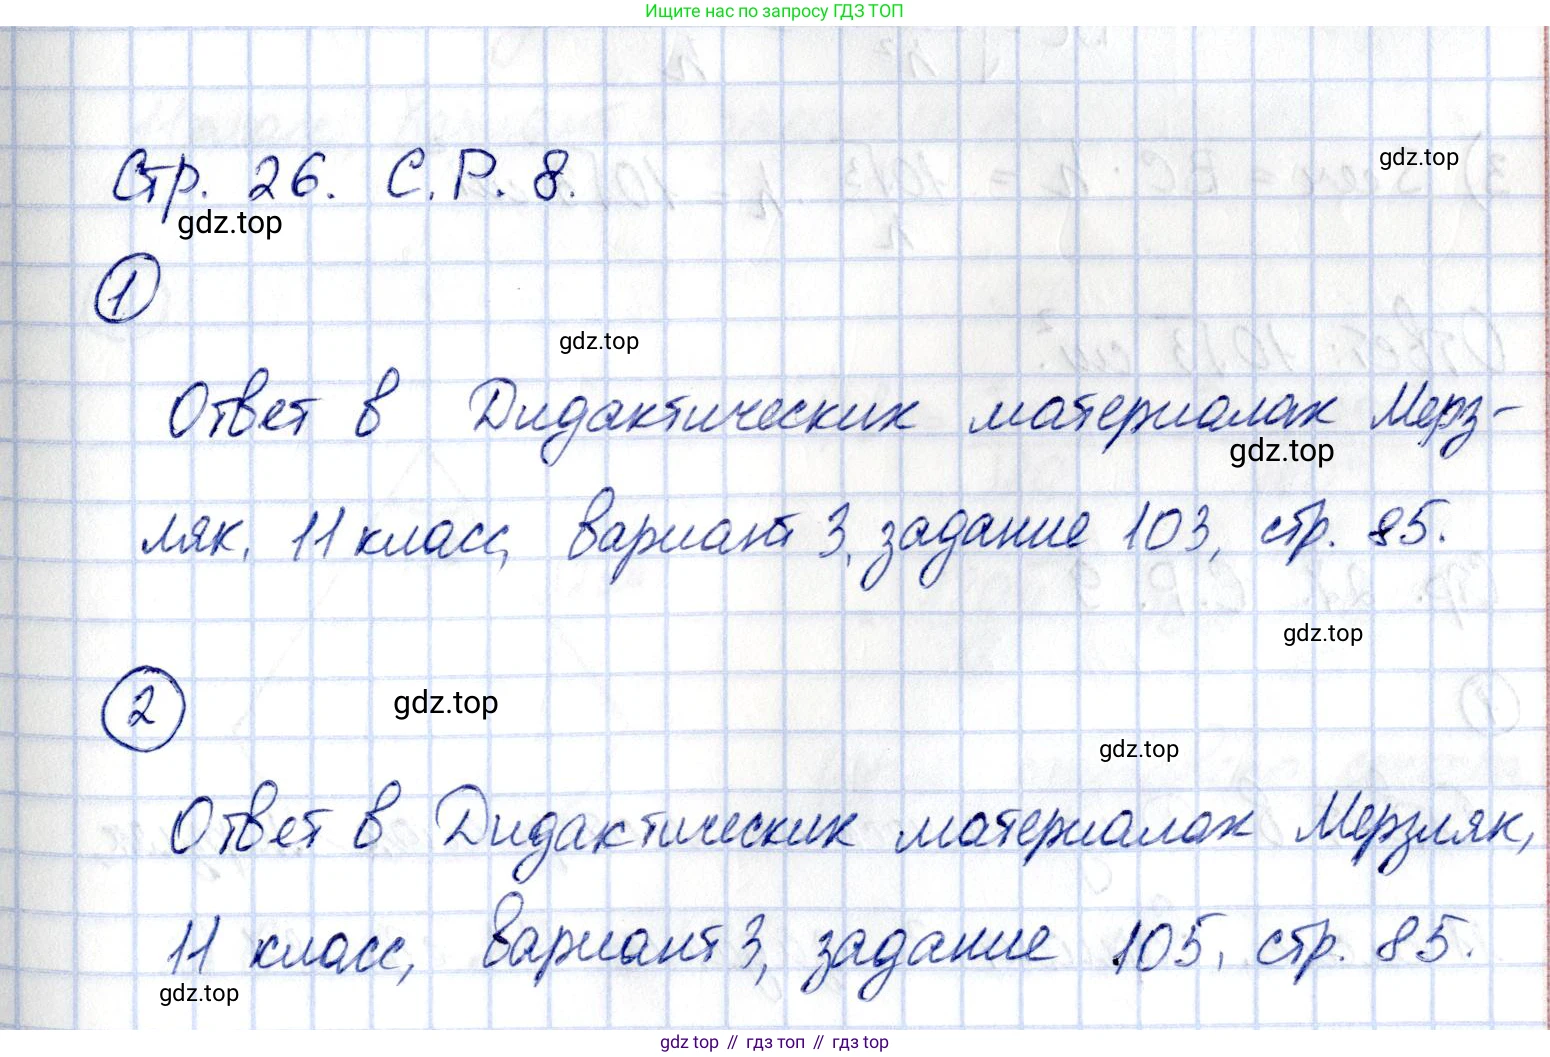 Ищите нас по запросу ГДЗ ТОП
gdz.top
Стр. 26. С.Р. 8.
gdz.top
1
gdz.top
Ответ в Дидактических материалах Мерз-
gdz.top
ляк, 11 класс, вариант 3, задание 103, стр. 85.
gdz.top
2
gdz.top
gdz.top
Ответ в Дидактических материалах Мерзляк,
11 класс, вариант 3, задание 105, стр. 85.
gdz.top
gdz top // гдз топ // гдз top